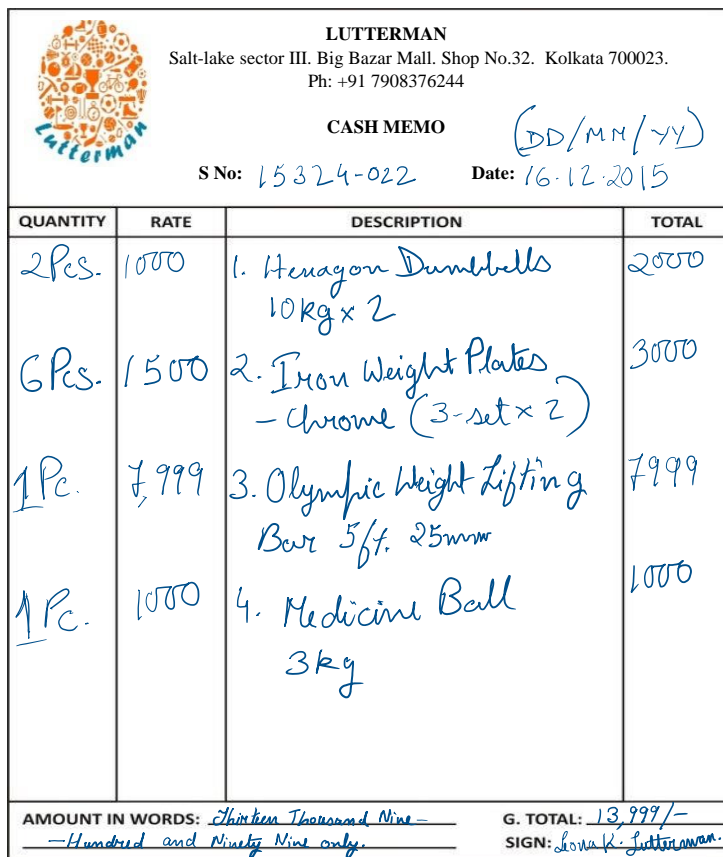 Lutterman
LUTTERMAN
Salt-lake sector III. Big Bazar Mall. Shop No.32. Kolkata 700023.
Ph: +91 7908376244
CASH MEMO
(DD/MM/YY)
S No: 15324-022 Date: 16.12.2015
QUANTITY RATE DESCRIPTION TOTAL
2Pcs. 1000 1. Hexagon Dumbbells 2000
10kg x 2
6 Pcs. 1500 2. Iron Weight Plates 3000
- Chrome (3-set x 2)
1 Pc. 7,999 3. Olympic Weight Lifting 7999
Bar 5ft. 25mm
1 Pc. 1000 4. Medicine Ball 1000
3kg
AMOUNT IN WORDS: Thirteen Thousand Nine- G. TOTAL: 13,999/-
-Hundred and Ninety Nine only. SIGN: Leona K. Lutterman.